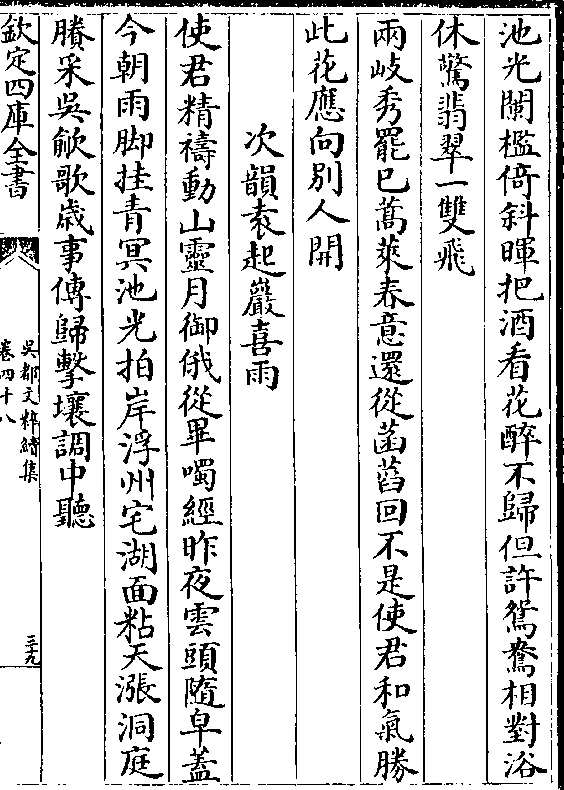 池光闌檻倚斜暉把酒看花醉不歸但許鴛鴦相對浴
休驚翡翠一雙飛
兩岐秀罷已蒿萊春意還從菡萏回不是使君和氣勝
此花應向別人開
次韻袁起巖喜雨
使君精禱動山靈月御俄從畢噣經昨夜雲頭隨皁蓋
今朝雨脚挂青冥池光拍岸浮州宅湖面粘天漲洞庭
賸采吳歈歌歲事傳歸擊壤調中聽
欽定四庫全書
吳都文粹續集
卷四十八
三九